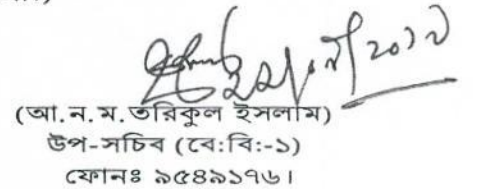 (আ.ন.ম.তরিকুল ইসলাম)
উপ-সচিব (বে:বি:-১)
ফোনঃ ৯৫৪৯১৭৬।